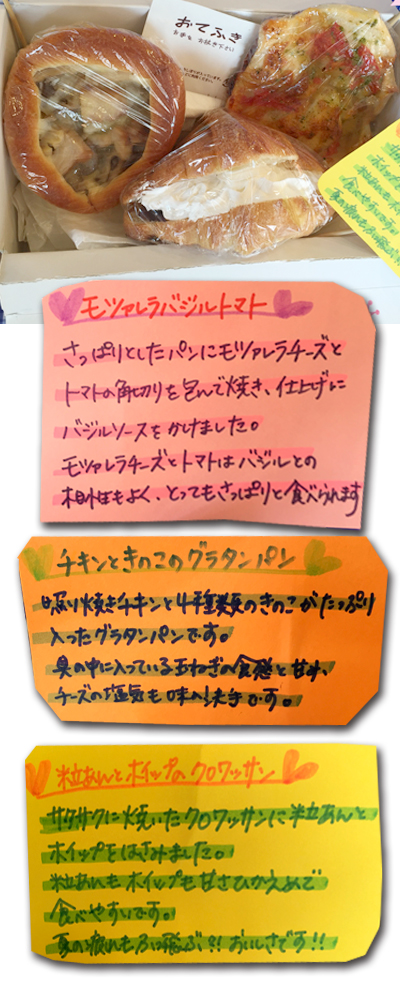 おてふき
お手を お拭き下さい
モツァレラバジルトマト
さっぱりとしたパンにモツァレラチーズと
トマトの角切りを包んで焼き、仕上げに
バジルソースをかけました。
モツァレラチーズとトマトはバジルとの
相性もよく、とってもさっぱりと食べられます
チキンときのこのグラタンパン
照り焼きチキンと4種類のきのこがたっぷり
入ったグラタンパンです。
具の中に入っている玉ねぎの食感と甘み、
チーズの塩気も味の決め手です。
粒あんとホイップのクロワッサン
サクサクに焼いたクロワッサンに粒あんと
ホイップをはさみました。
粒あんもホイップも甘さひかえめで
食べやすいです。
夏の疲れもふっ飛ぶ!!おいしさです!!